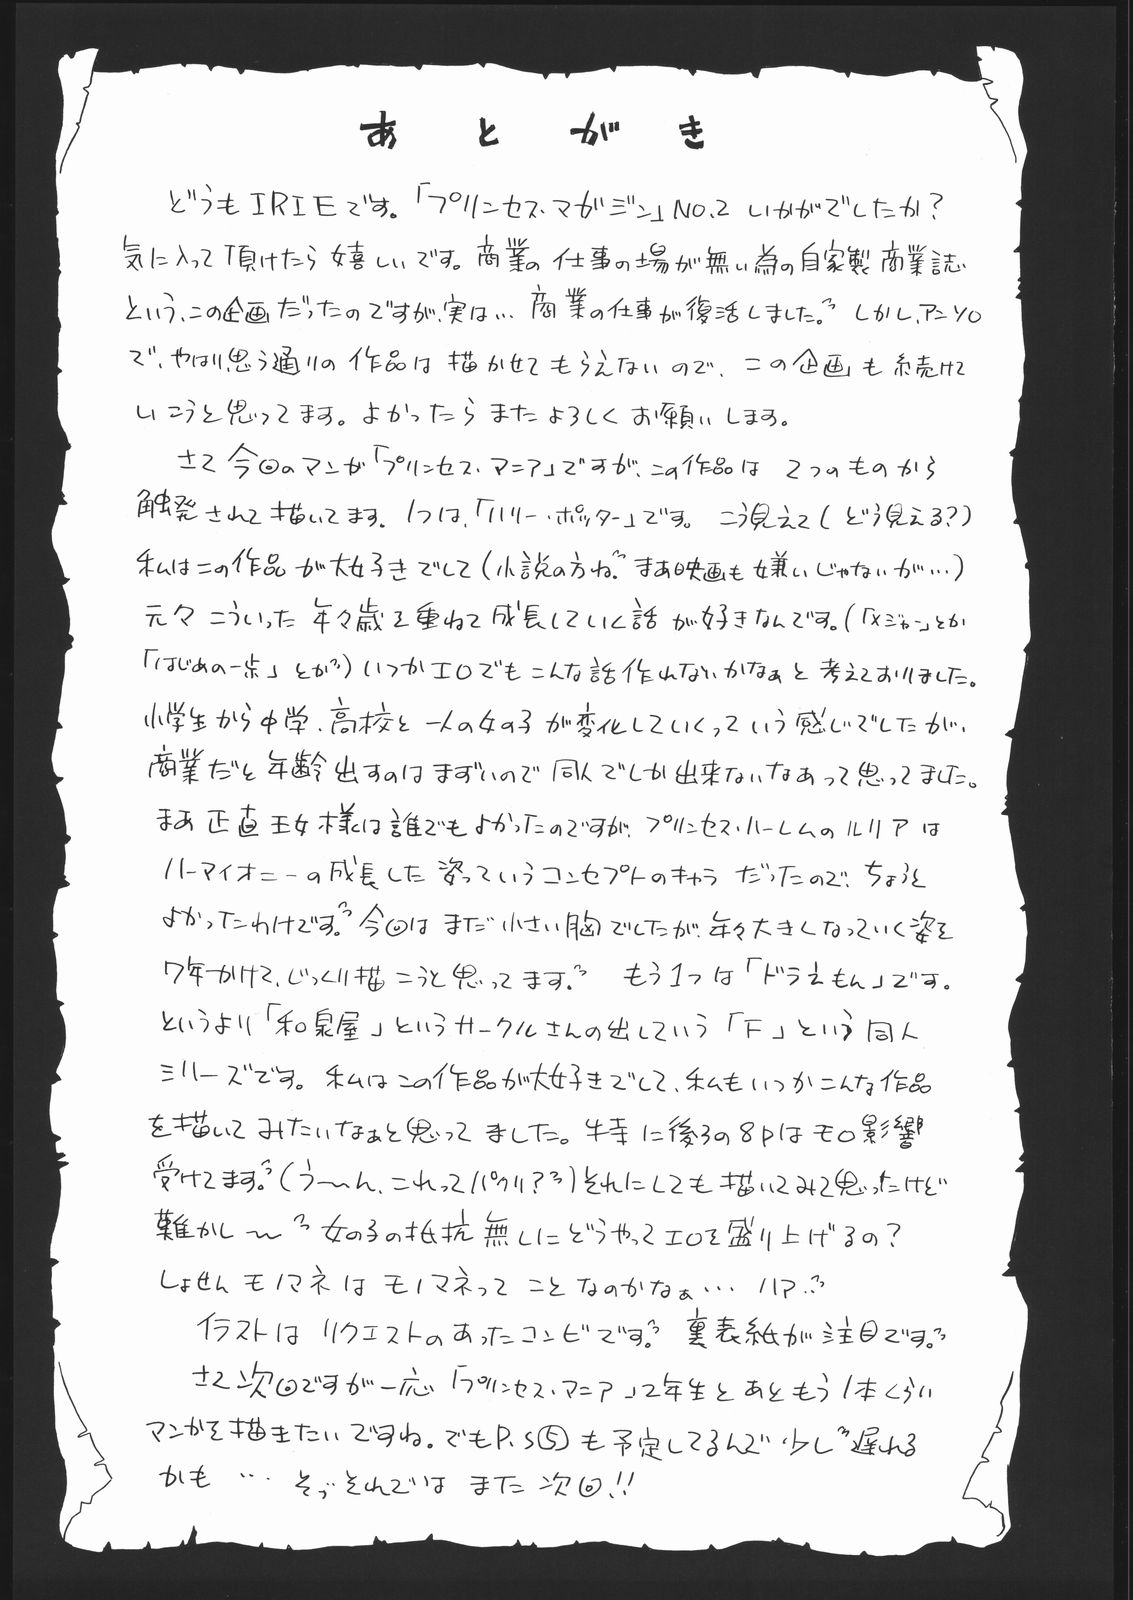 あとがき
どうもIRIEです。「プリンセス・マガジン」NO.2 いかがでしたか？
気に入って頂けたら嬉しいです。商業の仕事の場が無い為の自家製商業誌
という、この企画だったのですが、実は… 商業の仕事が復活しました。しかし、アンソロ
で、やはり思う通りの作品は描かせてもらえないので、この企画も続けて
いこうと思ってます。よかったらまたよろしくお願いします。
さて今回のマンガ「プリンセス・マニア」ですが、この作品は 2つのものから
触発されて描いてます。1つは、「ハリー・ポッター」です。こう見えて(どう見える？)
私はこの作品が大好きでして(小説の方ね。まあ映画も嫌いじゃないが…)
元々こういった年々歳を重ねて成長していく話が好きなんです。(「メジャー」とか
「はじめの一歩」とか)いつかエロでもこんな話作れないかなぁと考えておりました。
小学生から中学、高校と一人の女の子が変化していくっていう感じでしたが、
商業だと年齢出すのはまずいので同人でしか出来ないなあって思ってました。
まあ正直王女様は誰でもよかったのですが、プリンセス・ハーレムのルリアは
ハーマイオニーの成長した姿っていうコンセプトのキャラだったので、ちょうど
よかったわけです。今回はまだ小さい胸でしたが、年々大きくなっていく姿を
7年かけて、じっくり描こうと思ってます。 もう1つは「ドラえもん」です。
というより「和泉屋」というサークルさんの出している「F」という同人
シリーズです。私はこの作品が大好きでして、私もいつかこんな作品
を描いてみたいなぁと思ってました。特に後ろの8Pはモロ影響
受けてます。(う〜ん、これってパクリ？)それにしても描いてみて思ったけど
難かし〜 女の子の抵抗無しにどうやってエロを盛り上げるの？
しょせんモノマネはモノマネってことなのかなぁ… ハァ…
イラストはリクエストのあったコンビです。裏表紙が注目です。
さて次回ですが一応「プリンセス・マニア」2年生とあともう1本くらい
マンガを描きたいですね。でもP.S⑤も予定してるんで少し遅れる
かも … そっそれではまた次回!!